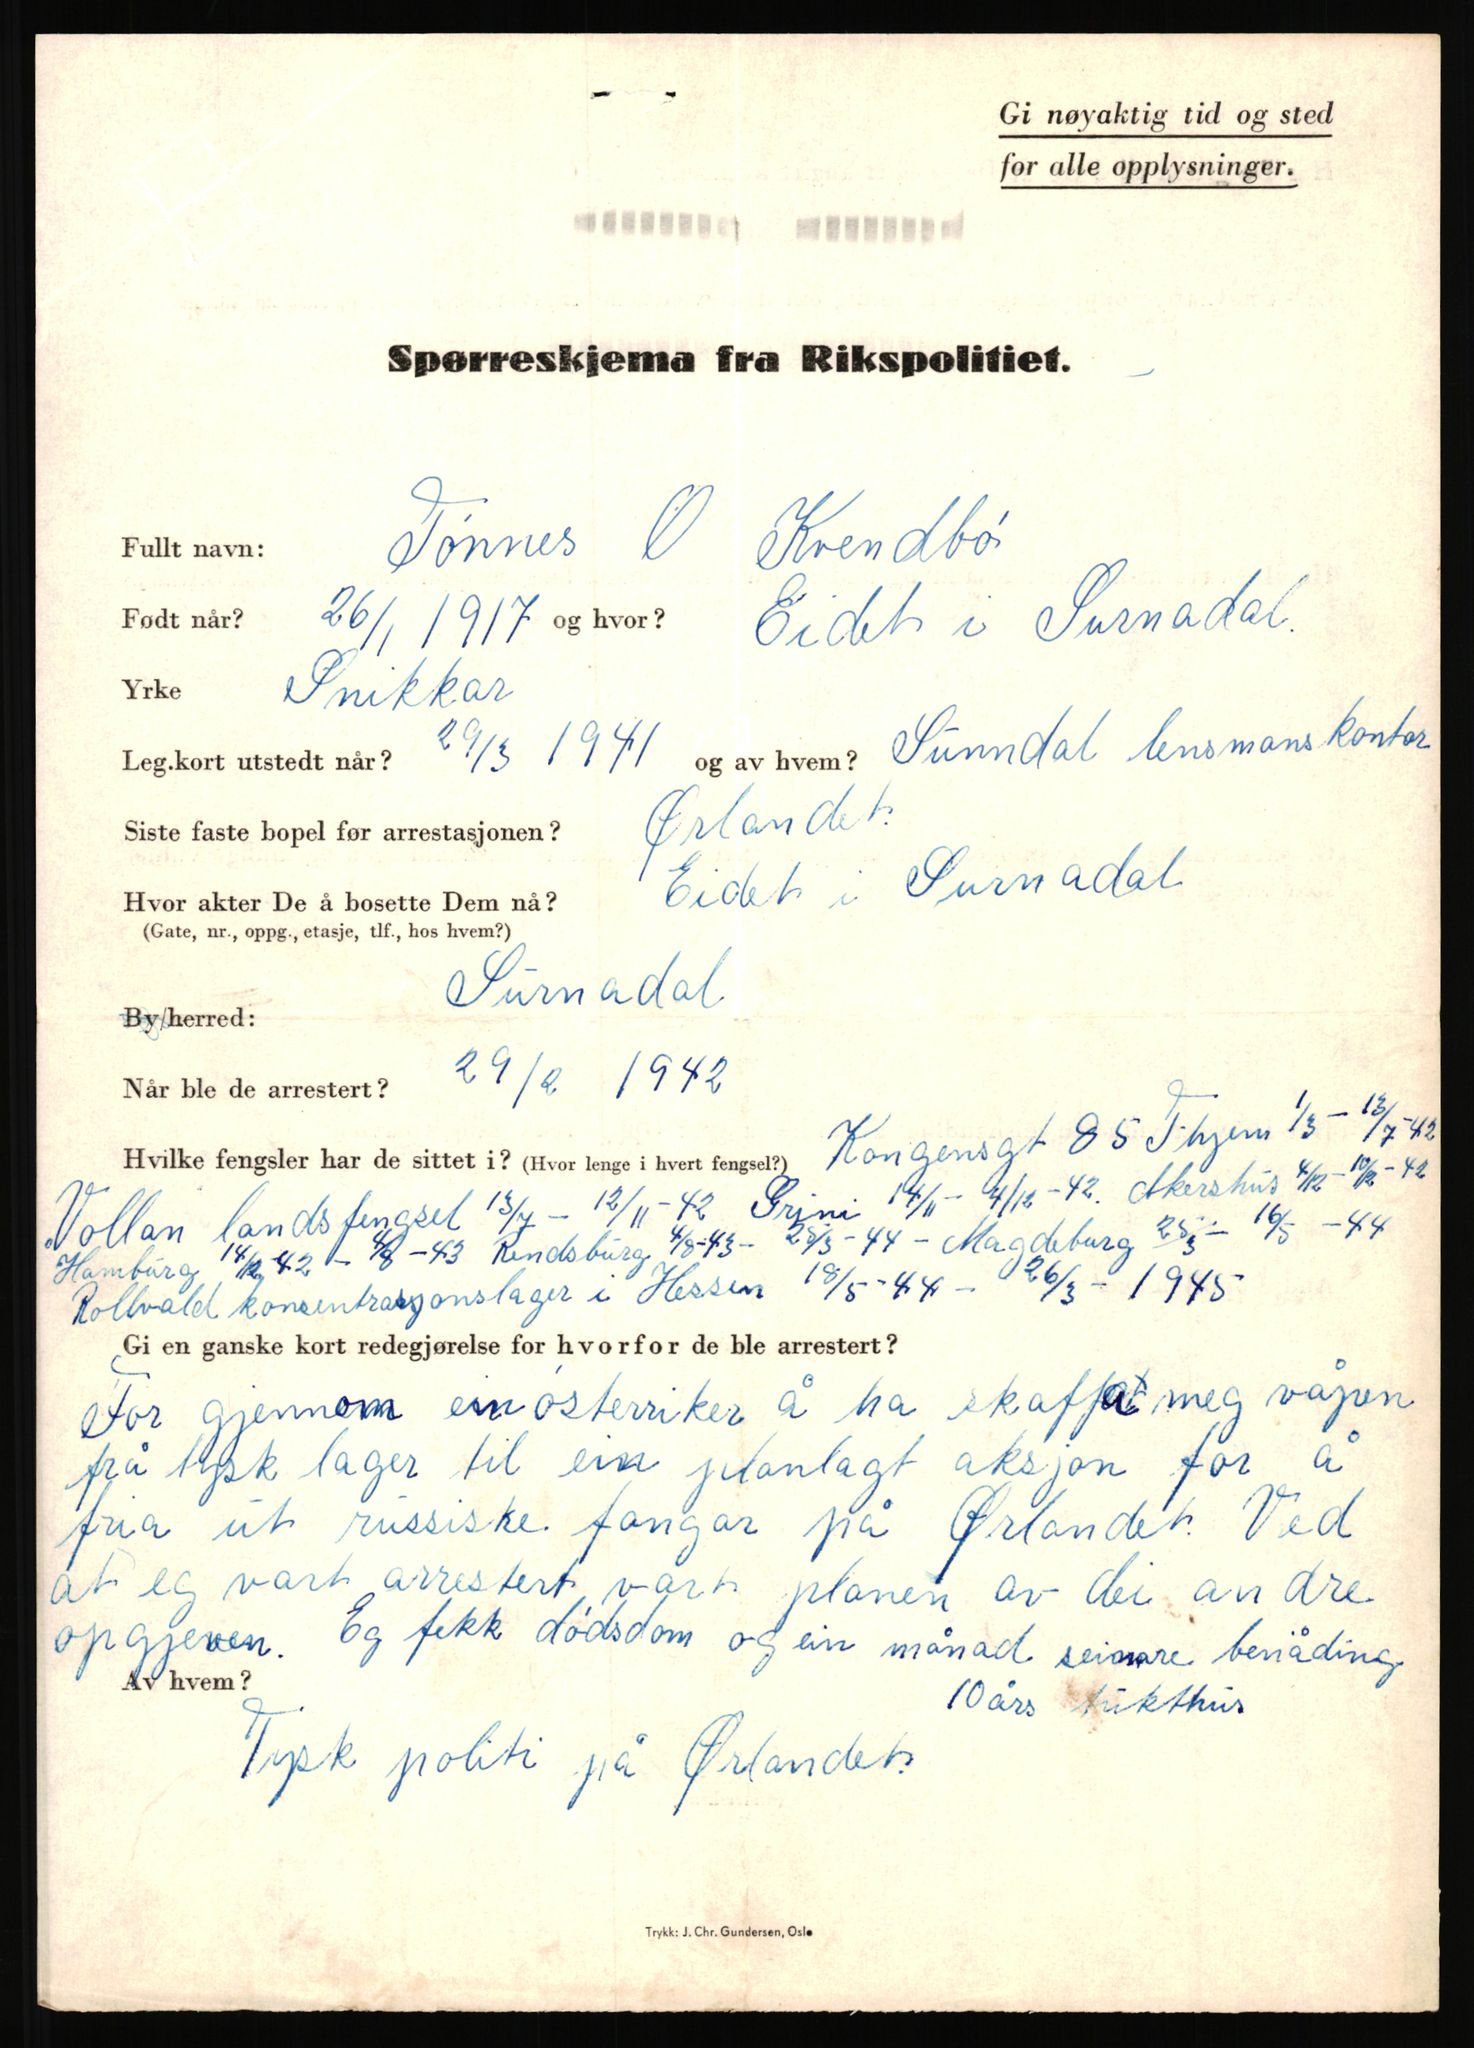 Gi nøyaktig tid og sted
for alle opplysninger.
Spørreskjema fra Rikspolitiet.
Fullt navn: Tønnes O Kvendbø
Født når? 26/1 1917 og hvor? Eidet i Surnadal.
Yrke Snikkar
Leg.kort utstedt når? 29/3 1941 og av hvem? Sunndal lensmanskontor
Siste faste bopel før arrestasjonen? Ørlandet.
Hvor akter De å bosette Dem nå? Eidet i Surnadal
(Gate, nr., oppg., etasje, tlf., hos hvem?)
By/herred: Surnadal
Når ble de arrestert? 29/2 1942
Hvilke fengsler har de sittet i? (Hvor lenge i hvert fengsel?) Kongensgt 85 Tr.hjem 1/3 - 13/7 - 42
Vollan landsfengsel 13/7 - 12/11 - 42 Grini 14/11 - 4/12 - 42. Akershus 4/12 - 10/12 - 42
Hamburg 14/12 42 - 4/8 - 43 Rendsburg 4/8 - 43 - 28/3 - 44 - Magdeburg 28/3 - 16/5 - 44
Rollvald konsentrasjonslager i Hessen 18/5 - 44 - 26/3 - 1945
Gi en ganske kort redegjørelse for hvorfor de ble arrestert?
For gjennom ein østerriker å ha skaffat meg våpen
frå tysk lager til ein planlagt aksjon for å
fria ut russiske fangar på Ørlandet. Ved
at eg vart arrestert vart planen av dei andre
opgjeven. Eg fekk dødsdom og ein månad seinare benåding
10 års tukthus
Av hvem?
Tysk politi på Ørlandet.
Trykk: J. Chr. Gundersen, Oslo